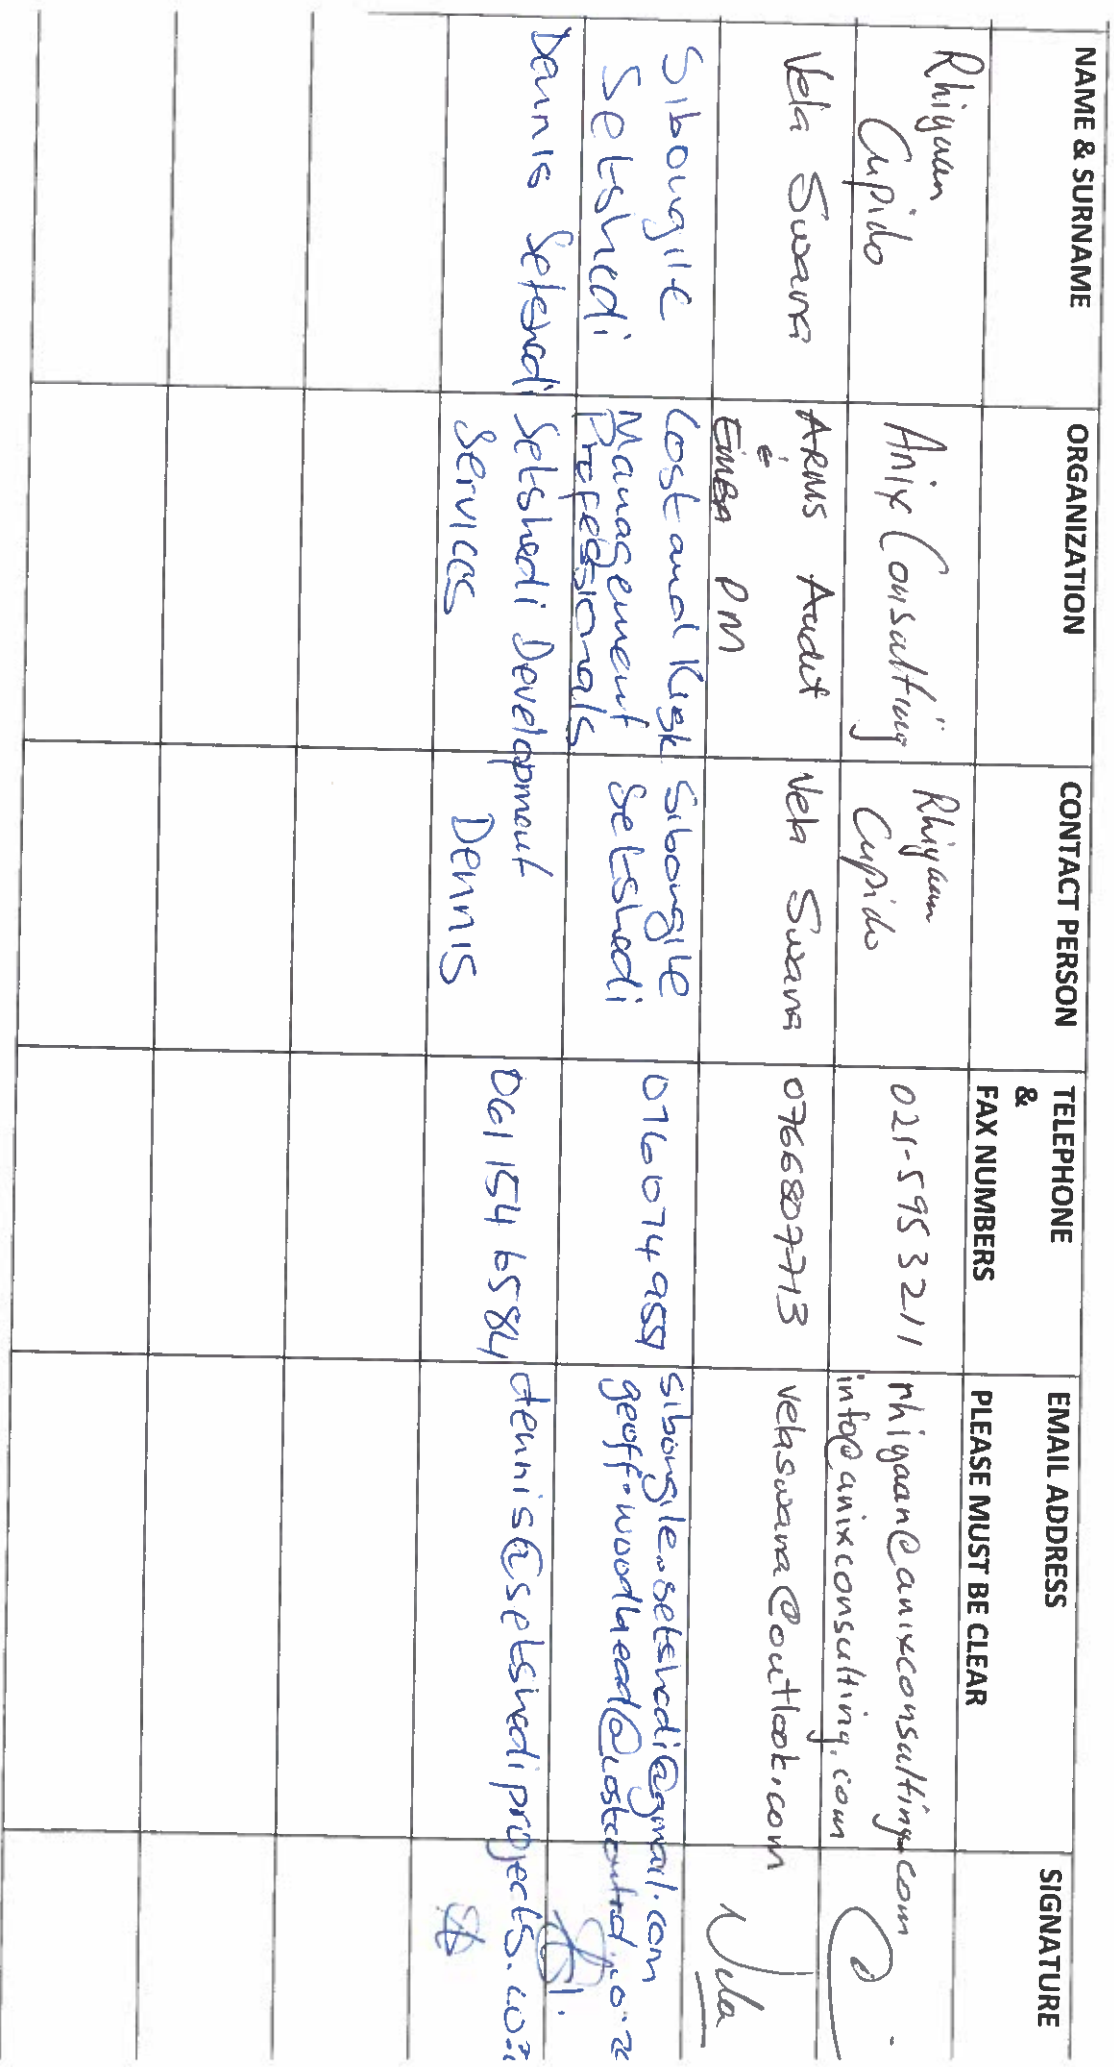 NAME & SURNAME
ORGANIZATION
CONTACT PERSON
TELEPHONE
&
FAX NUMBERS
EMAIL ADDRESS
PLEASE MUST BE CLEAR
SIGNATURE
Rhiyaan
Cupido
Anix Consulting
Rhiyaan
Cupido
021-595 3211
rhiyaan@anixconsulting.com
info@anixconsulting.com
Vela Swana
ARMS Audit
&
EIMBA PM
Vela Swana
0766807713
velaswana@outlook.com
Vela
Sibongile
Setshedi
Cost and Risk
Management
Professionals
Sibongile
Setshedi
076 074 9551
sibongile.setshedi@gmail.com
geoff.woodhead@costcontrol.co.za
Dennis Setshedi
Setshedi Development
Services
Dennis
061 154 6584
dennis@setshediprojects.co.za